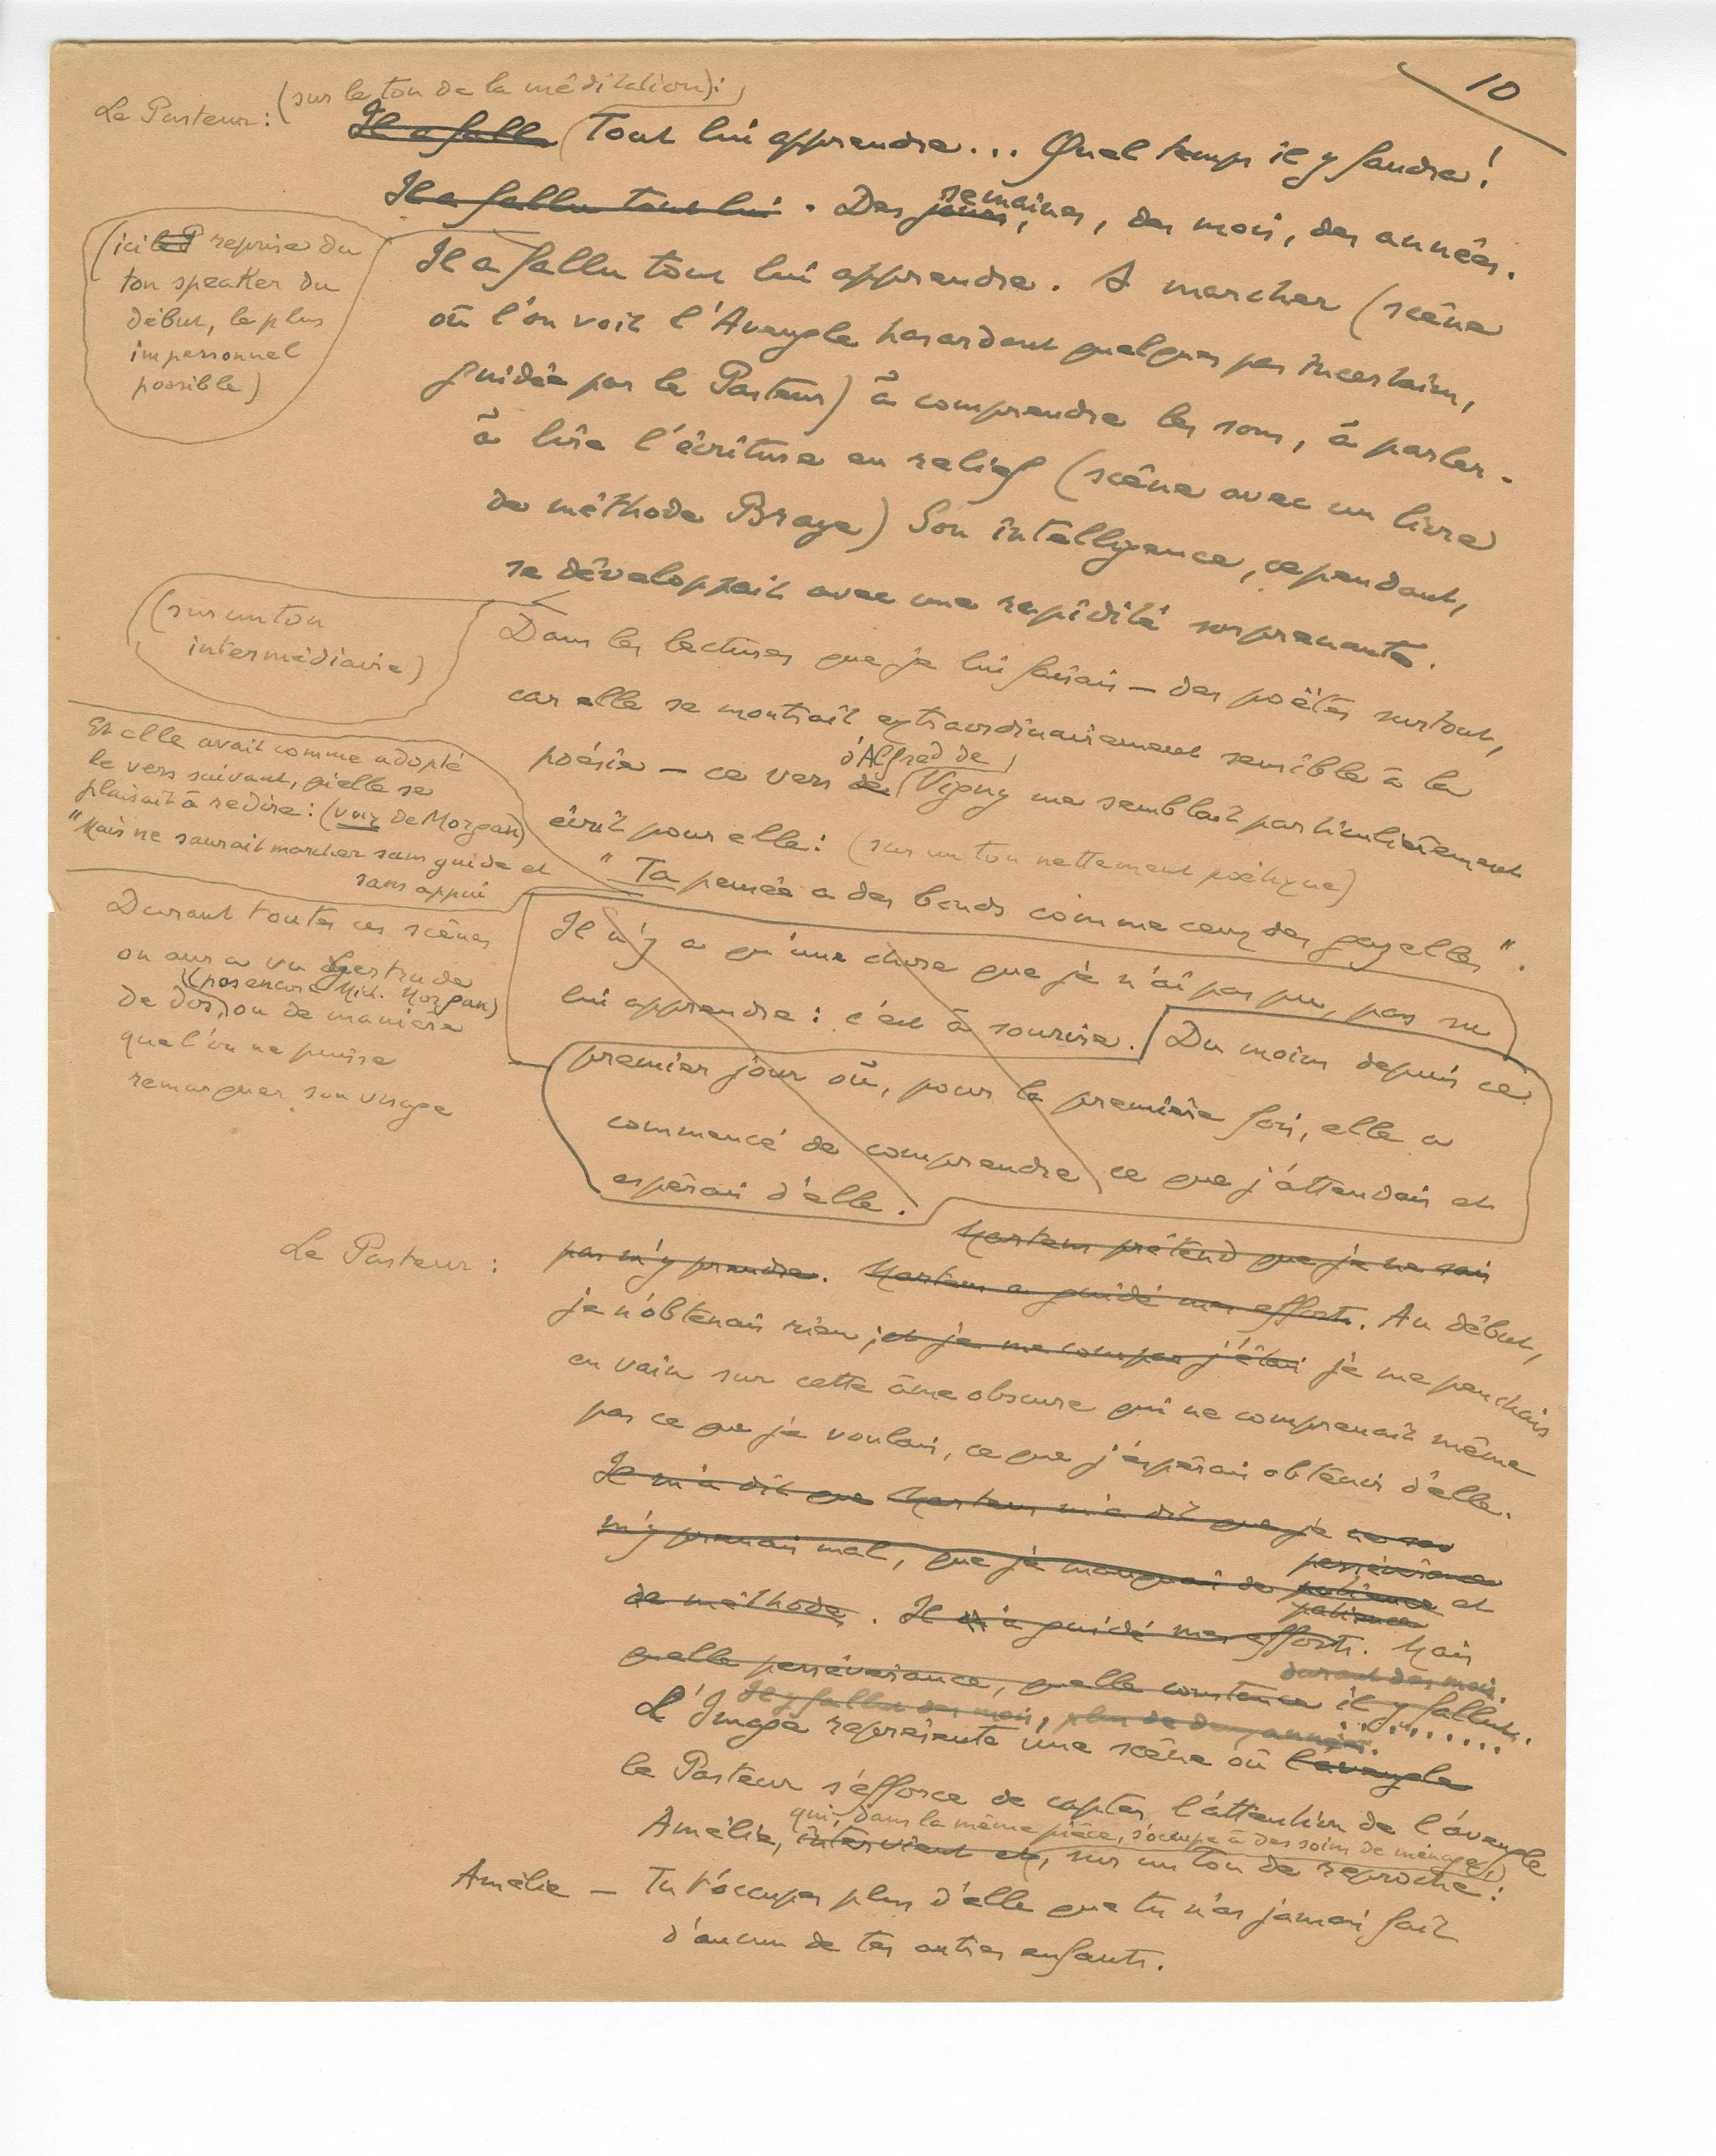 10
Le Pasteur : (sur le ton de la méditation) :
Il a fallu Tout lui apprendre... Quel temps il y faudra !
Il a fallu tout lui . Des jours, semaines, des mois, des années.
(ici reprise du
ton speaker du
début, le plus
impersonnel
possible)
Il a fallu tout lui apprendre. A marcher (scène
où l'on voit l'Aveugle hasardant quelques pas incertains,
guidée par le Pasteur) à comprendre les sons, à parler.
à lire l'écriture en relief (scène avec un livre
de méthode Braye) Son intelligence, cependant,
se développait avec une rapidité surprenante.
(sur un ton
intermédiaire)
Dans les lectures que je lui faisais — des poëtes surtout,
car elle se montrait extraordinairement sensible à la
poésie — ce vers de d'Alfred de Vigny me semblait particulièrement
écrit pour elle : (sur un ton nettement poétique)
"Ta pensée a des bonds comme ceux des gazelles".
Et elle avait comme adopté
le vers suivant, qu'elle se
plaisait à redire : (voix de Morgan)
"Mais ne saurait marcher sans guide et
sans appui
Durant toutes ces scènes
on aura vu Gertrude
(pas encore Mich. Morgan)
de dos, ou de manière
que l'on ne puisse
remarquer son visage
Il n'y a qu'une chose que je n'ai pas pu, pas su
lui apprendre : c'est à sourire. Du moins depuis ce
premier jour où, pour la première fois, elle a
commencé de comprendre ce que j'attendais et
espérais d'elle.
Martens prétend que je ne sais
Le Pasteur : pas m'y prendre. Martens a guidé mes efforts. Au début,
je n'obtenais rien ; et je me j'étais je me penchais
en vain sur cette âme obscure qui ne comprenait même
pas ce que je voulais, ce que j'espérais obtenir d'elle.
Il m'a dit que Martens m'a dit que je ne
m'y prenais mal, que je manquais de patience persévérance patience et
de méthode. Il a guidé mes efforts. Mais
quelle persévérance, quelle constance il y fallut. durant des mois.
Il y fallu des mois, plus de deux années.
L'Image représente une scène où l'aveugle
le Pasteur s'efforce de capter l'attention de l'aveugle
qui, dans la même pièce, s'occupe à des soins de ménage,
Amélie, intervient et, sur un ton de reproche :
Amélie — Tu t'occupes plus d'elle que tu n'as jamais fait
d'aucun de tes autres enfants.